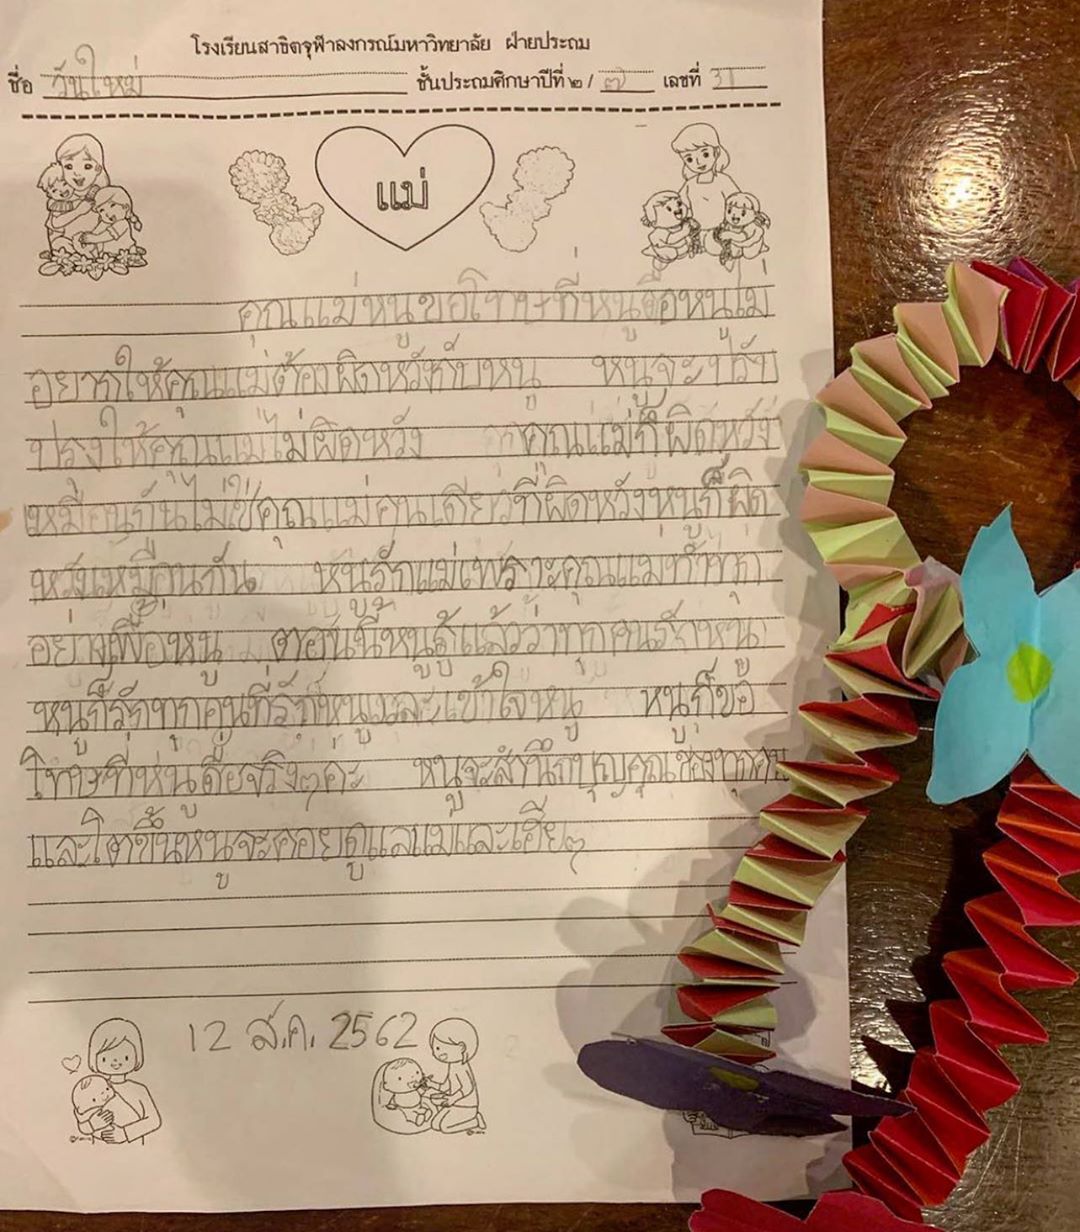 โรงเรียนสาธิตจุฬาลงกรณ์มหาวิทยาลัย ฝ่ายประถม
ชื่อ วันใหม่ ชั้นประถมศึกษาปีที่ ๒ / ๗ เลขที่ 31
แม่
คุณแม่หนูขอโทษที่หนูดื้อหนูไม่
อยากให้คุณแม่ต้องผิดหวังกับหนู หนูจะปรับ
ปรุงให้คุณแม่ไม่ผิดหวัง คุณแม่ก็ผิดหวัง
เหมือนกันไม่ใช่คุณแม่คนเดียวที่ผิดหวังหนูก็ผิด
หวังเหมือนกัน หนูรักแม่เพราะคุณแม่ทำทุก
อย่างเพื่อหนู ตอนนี้หนูรู้แล้วว่าทุกคนรักหนู
หนูก็รักทุกคนที่รักหนูและเข้าใจหนู หนูก็ขอ
โทษที่หนูดื้อจริงๆค่ะ หนูจะสำนึกบุญคุณของทุกคน
และโตขึ้นหนูจะคอยดูแลแม่และเฮียๆ
12 ส.ค. 2562